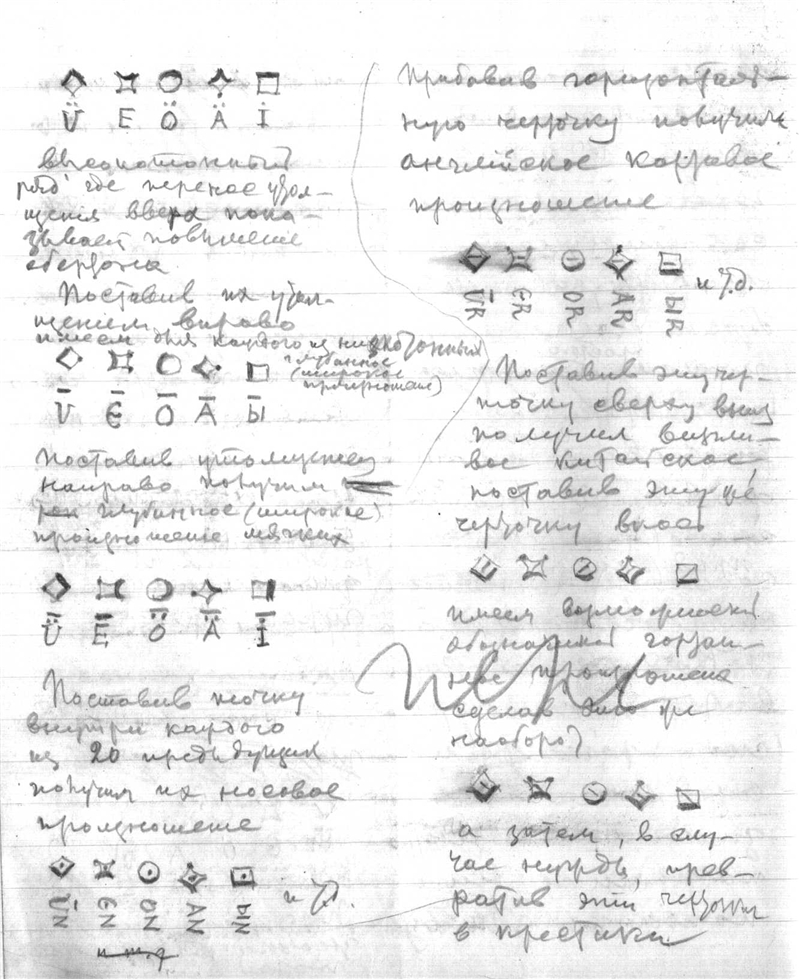 Ü Ë Ö Ä İ
высокотонный
ряд где перенос утол-
щения вверх пока-
зывает повышение
обертона
Поставив их утол-
щением вправо
имеем для каждого из низкотонных
глубинное
(широкое
произношение)
Ū Є̄ Ō Ā Ы̄
поставив утолщение
направо получим
глубинное (широкое)
произношение мягких
Ǖ Ē Ȫ Ǟ Ī
Поставив точку
внутри каждого
из 20 предыдущих
получим их носовое
произношение
ŪN ЄN ON AN ЫN и т.д.
Прибавив горизонталь-
ную черточку получим
английское картавое
произношение
ŪR ЄR OR AR ЫR и т.д.
Поставив эту чер-
точку сверху вниз
получил визгли-
вое китайское,
поставив эту же
черточку вкось
имеем возможность
обозначить гортан-
ное произношение
сделав это же
наоборот
а затем, в слу-
чае нужды, прев-
ратив эти черточки
в крестики